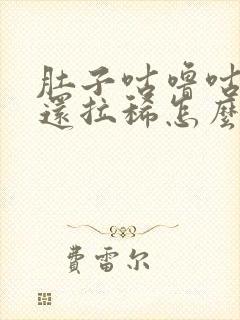 肚子咕嚕咕
還拉稀怎麼
費雷尔